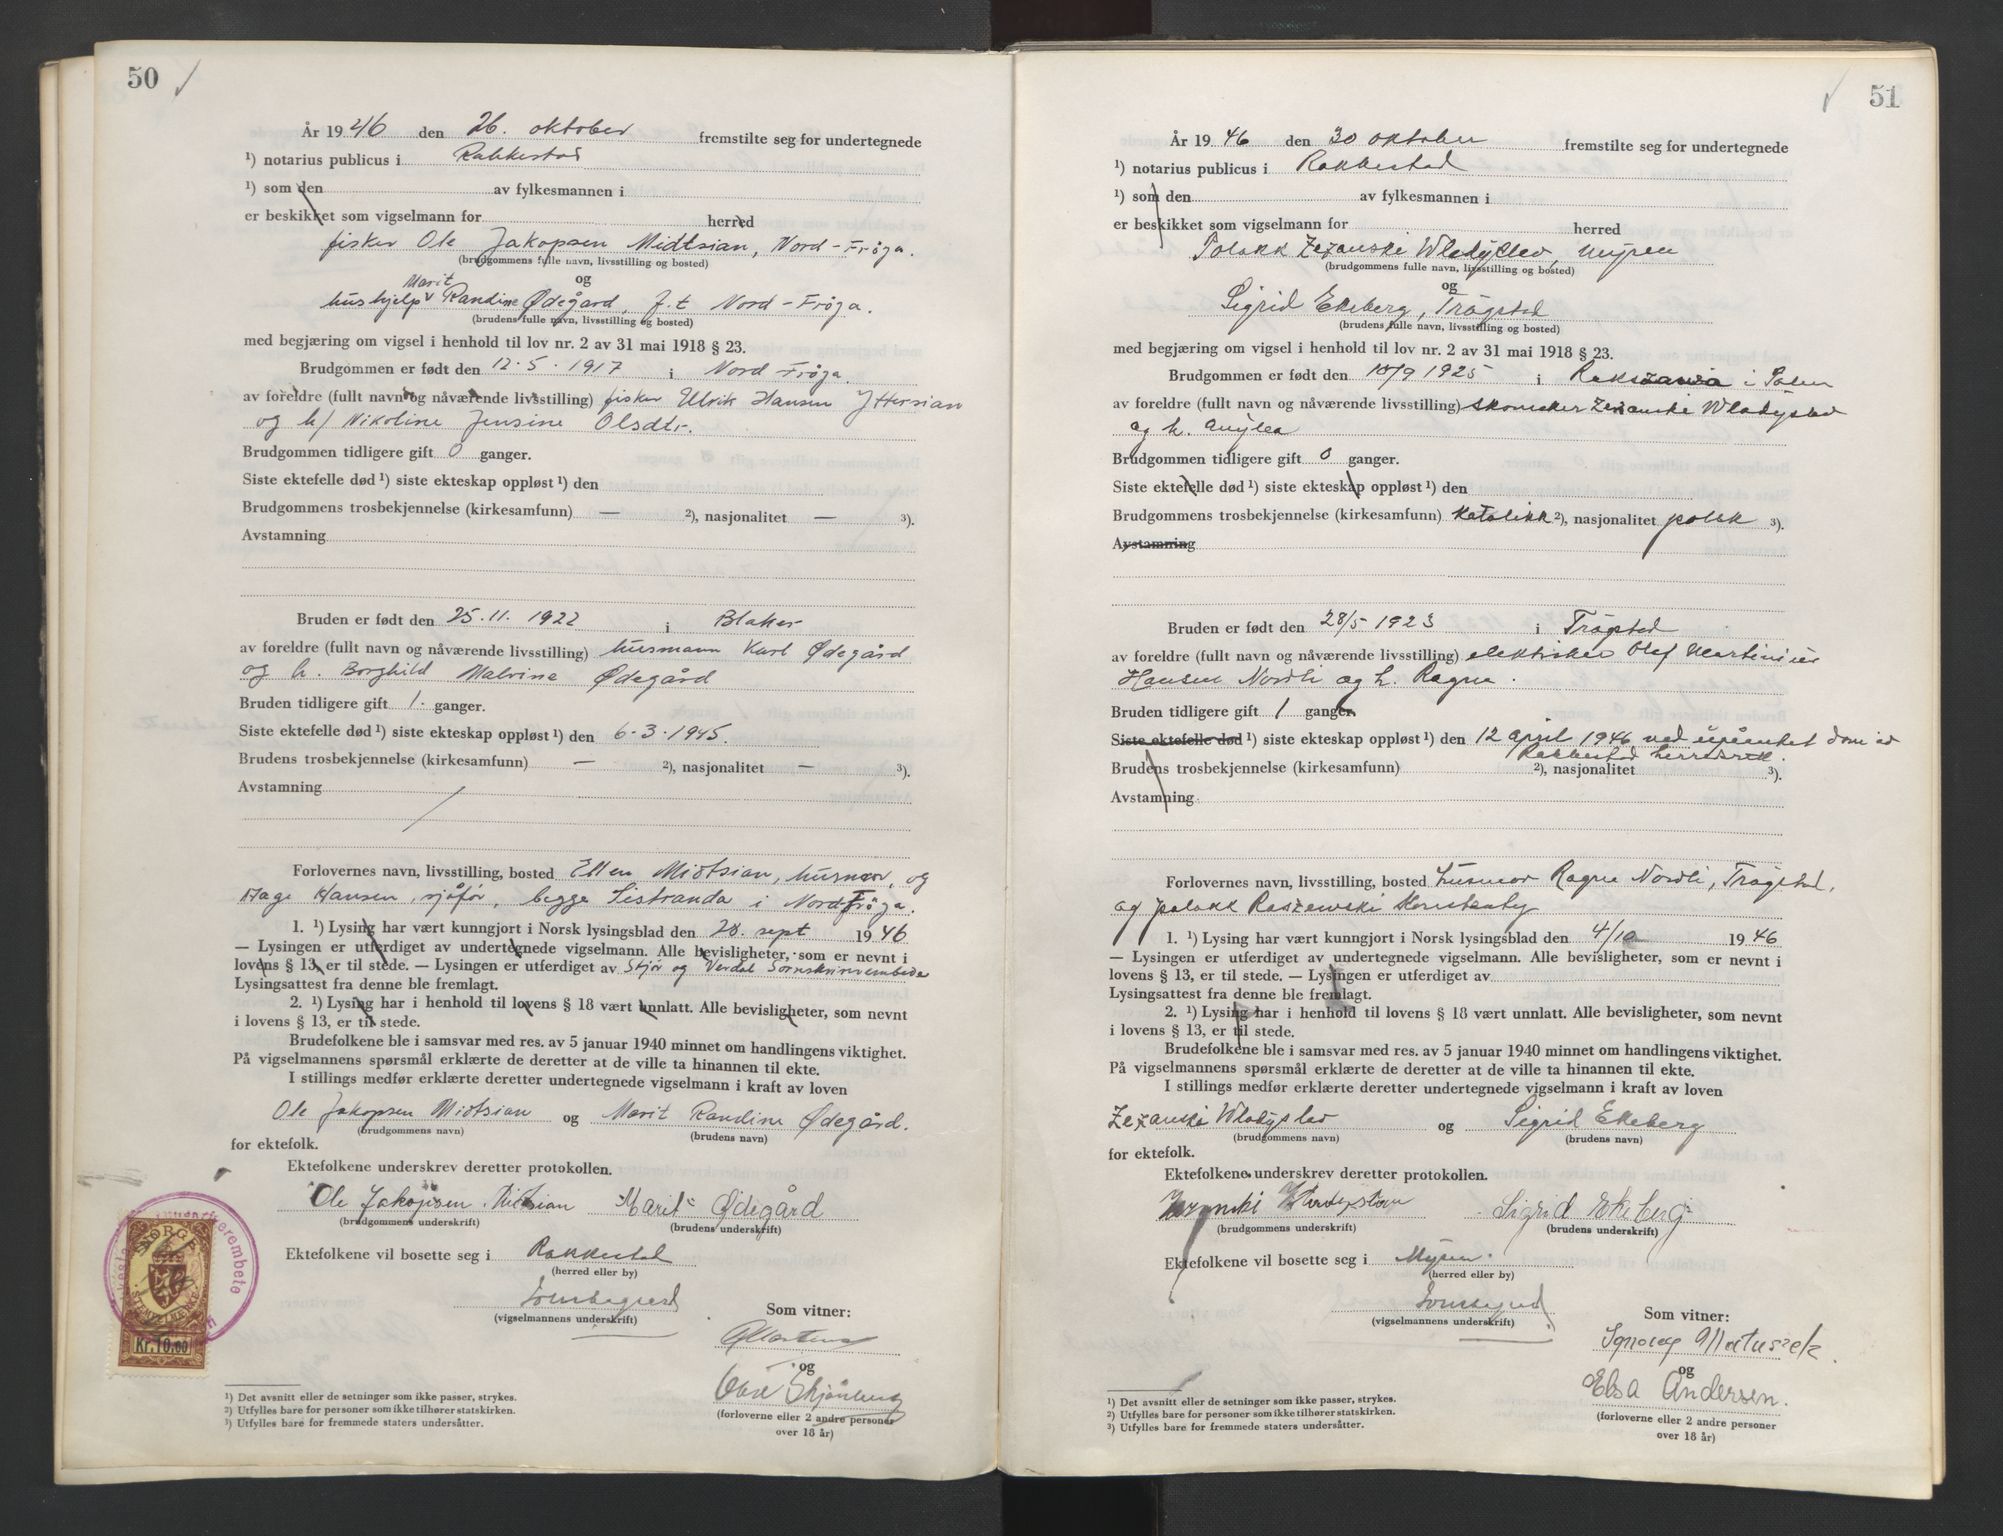 50
År 1946 den 26. oktober fremstilte seg for undertegnede
¹) notarius publicus i Rakkestad
¹) som den av fylkesmannen i
er beskikket som vigselmann for herred
fisker Ole Jakopsen Midtsian, Nord-Frøya.
(brudgommens fulle navn, livsstilling og bosted)
og
Marit
hushjelp v Randine Ødegård, f.t Nord-Frøya.
(brudens fulle navn, livsstilling og bosted)
med begjæring om vigsel i henhold til lov nr. 2 av 31 mai 1918 § 23.
Brudgommen er født den 12.5.1917 i Nord Frøya.
av foreldre (fullt navn og nåværende livsstilling) fisker Ulrik Hansen Yttersian
og h/ Nikoline Jensine Olsdtr.
Brudgommen tidligere gift 0 ganger.
Siste ektefelle død ¹) siste ekteskap oppløst ¹) den
Brudgommens trosbekjennelse (kirkesamfunn) — ²), nasjonalitet — ³).
Avstamning
Bruden er født den 25.11.1922 i Blaker
av foreldre (fullt navn og nåværende livsstilling) husmann Karl Ødegård
og h. Borghild Malvine Ødegård
Bruden tidligere gift 1. ganger.
Siste ektefelle død ¹) siste ekteskap oppløst ¹) den 6-3-1945.
Brudens trosbekjennelse (kirkesamfunn) — ²), nasjonalitet — ³).
Avstamning
Forlovernes navn, livsstilling, bosted Ellen Midtsian, husmor, og
Hage Hansen, sjåfør, begge Sistranda i Nord Frøya.
1. ¹) Lysing har vært kunngjort i Norsk lysingsblad den 28. sept 1946
— Lysingen er utferdiget av undertegnede vigselmann. Alle bevisligheter, som er nevnt i
lovens § 13, er til stede. — Lysingen er utferdiget av Stjør og Verdal Sorenskriverembede
Lysingsattest fra denne ble fremlagt.
2. ¹) Lysing har i henhold til lovens § 18 vært unnlatt. Alle bevisligheter, som nevnt
i lovens § 13, er til stede.
Brudefolkene ble i samsvar med res. av 5 januar 1940 minnet om handlingens viktighet.
På vigselmannens spørsmål erklærte de deretter at de ville ta hinannen til ekte.
I stillings medfør erklærte deretter undertegnede vigselmann i kraft av loven
Ole Jakopsen Midtsian og Marit Randine Ødegård.
(brudgommens navn) (brudens navn)
for ektefolk.
Ektefolkene underskrev deretter protokollen.
Ole Jakopsen Midtsian Marit Ødegård
(brudgommens underskrift) (brudens underskrift)
Ektefolkene vil bosette seg i Rakkestad
(herred eller by)
(vigselmannens underskrift)
Som vitner:
og
(forloverne eller 2 andre personer
over 18 år)
NORGE
STEMPELMERKE
Kr.10.00
¹) Det avsnitt eller de setninger som ikke passer, strykes.
²) Utfylles bare for personer som ikke tilhører statskirken.
³) Utfylles bare for fremmede staters undersåtter.
51
År 1946 den 30 oktober fremstilte seg for undertegnede
¹) notarius publicus i Rakkestad
¹) som den av fylkesmannen i
er beskikket som vigselmann for herred
Polakk Zezanski Wladyslav, Mysen
(brudgommens fulle navn, livsstilling og bosted)
og
Sigrid Ekeberg, Trøgstad
(brudens fulle navn, livsstilling og bosted)
med begjæring om vigsel i henhold til lov nr. 2 av 31 mai 1918 § 23.
Brudgommen er født den 10/9 1925 i Rakszawa i Polen
av foreldre (fullt navn og nåværende livsstilling) skomaker Zezanski Wladyslav
og h.
Brudgommen tidligere gift 0 ganger.
Siste ektefelle død ¹) siste ekteskap oppløst ¹) den
Brudgommens trosbekjennelse (kirkesamfunn) katolikk ²), nasjonalitet polsk ³).
Avstamning
Bruden er født den 28/5 1923 i Trøgstad
av foreldre (fullt navn og nåværende livsstilling) elektriker Olaf Martinius
Hansen Nordli og h. Ragna.
Bruden tidligere gift 1 ganger.
Siste ektefelle død ¹) siste ekteskap oppløst ¹) den 12 april 1946 ved upåanket dom av
Rakkestad herredsrett.
Brudens trosbekjennelse (kirkesamfunn) ²), nasjonalitet ³).
Avstamning
Forlovernes navn, livsstilling, bosted husmor Ragna Nordli, Trøgstad,
og polakk Raszewski
1. ¹) Lysing har vært kunngjort i Norsk lysingsblad den 4/10 1946
— Lysingen er utferdiget av undertegnede vigselmann. Alle bevisligheter, som er nevnt i
lovens § 13, er til stede. — Lysingen er utferdiget av
Lysingsattest fra denne ble fremlagt.
2. ¹) Lysing har i henhold til lovens § 18 vært unnlatt. Alle bevisligheter, som nevnt
i lovens § 13, er til stede.
Brudefolkene ble i samsvar med res. av 5 januar 1940 minnet om handlingens viktighet.
På vigselmannens spørsmål erklærte de deretter at de ville ta hinannen til ekte.
I stillings medfør erklærte deretter undertegnede vigselmann i kraft av loven
Zezanski Wladyslav og Sigrid Ekeberg
(brudgommens navn) (brudens navn)
for ektefolk.
Ektefolkene underskrev deretter protokollen.
Sigrid Ekeberg
(brudgommens underskrift) (brudens underskrift)
Ektefolkene vil bosette seg i Mysen.
(herred eller by)
(vigselmannens underskrift)
Som vitner:
Ignacy Matuszek.
og
Elsa Andersen.
(forloverne eller 2 andre personer
over 18 år)
¹) Det avsnitt eller de setninger som ikke passer, strykes.
²) Utfylles bare for personer som ikke tilhører statskirken.
³) Utfylles bare for fremmede staters undersåtter.